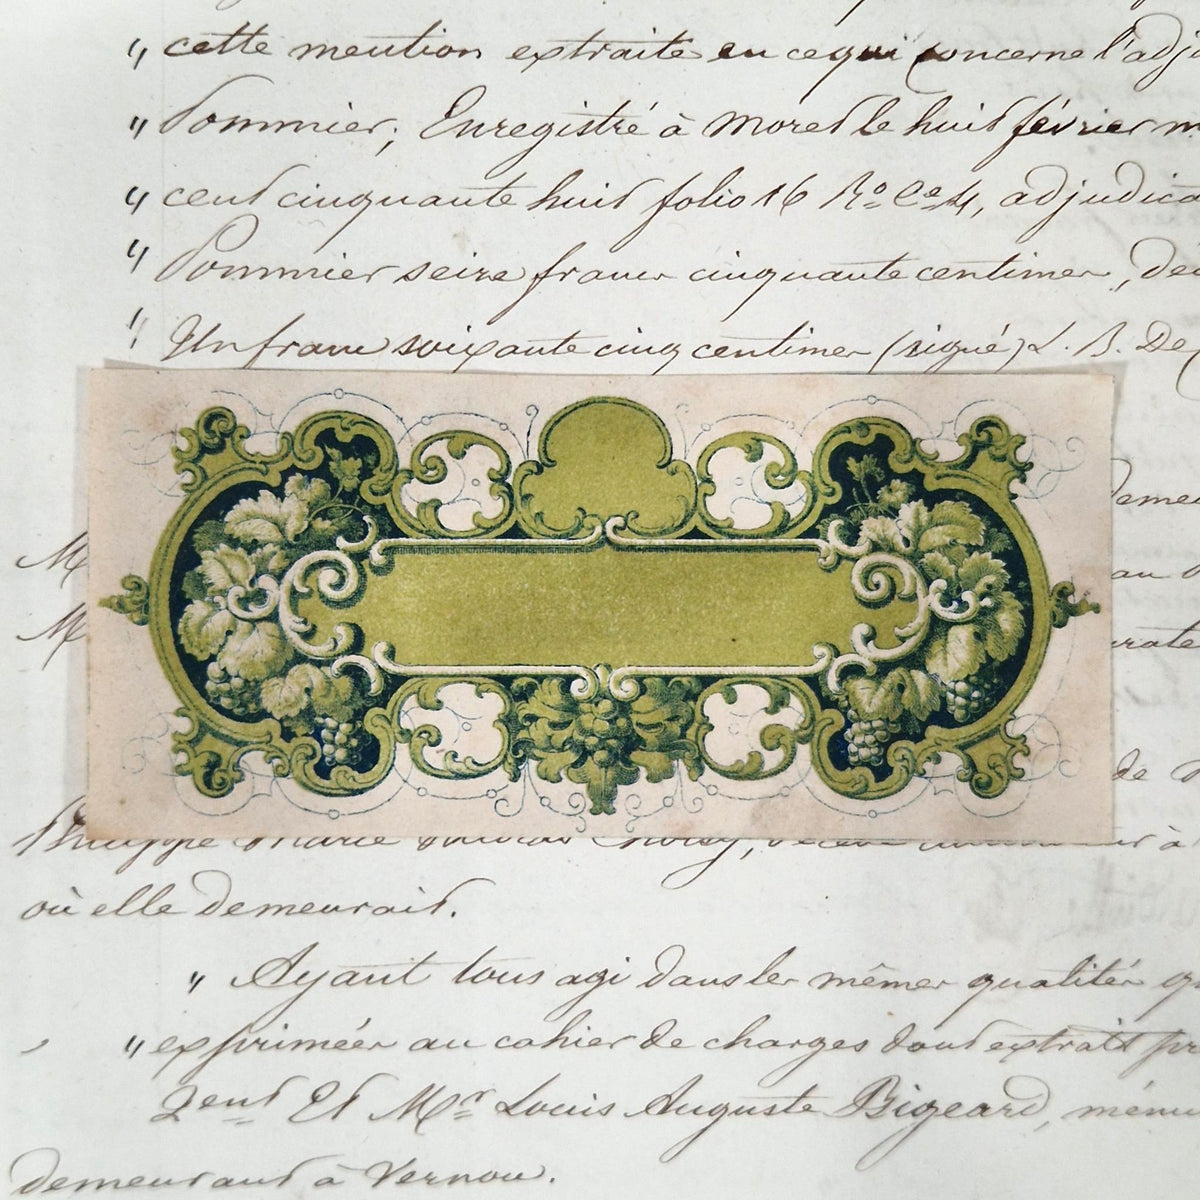 " cette mention extraite en ce qui concerne l'adju
" Pommier; Enregistré à Moret le huit février m
" cent cinquante huit folio 16 Ro. Ce. 4, adjudica
" Pommier seize francs cinquante centimes, dec
" Un franc soixante cinq centimes (signé) L. B. De
M
au
M
de
Philippe Marie
où elle demeurait.
" Ayant tous agi dans les mêmes qualités q
" exprimées au cahier de charges dont extrait pr
Et Mr Louis Auguste Bigeard,
demeurant à Vernou.